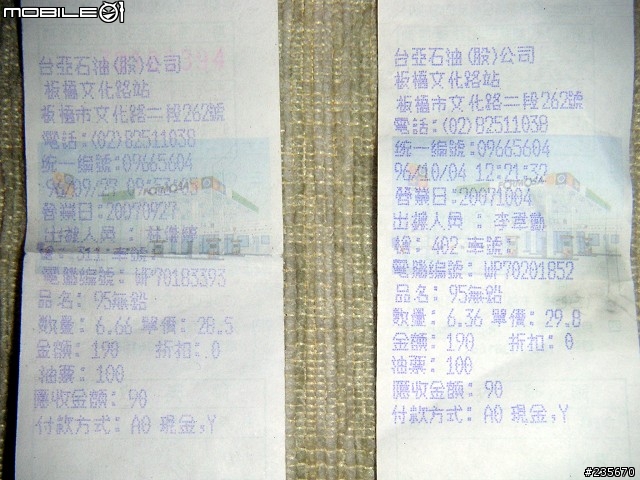 MOBILE01
台亞石油(股)公司
板橋文化路站
板橋市文化路二段262號
電話:(02)82511038
統一編號:09665604
96/09/27
營業日:20070927
出據人員:
槍: 311 車號:
電腦編號: WP70183393
品名: 95無鉛
數量: 6.66 單價: 28.5
金額: 190 折扣: 0
油票: 100
應收金額: 90
付款方式: A0 現金,Y
台亞石油(股)公司
板橋文化路站
板橋市文化路二段262號
電話:(02)82511038
統一編號:09665604
96/10/04 12:21:32
營業日:20071004
出據人員:李
槍: 402 車號:
電腦編號: WP70201852
品名: 95無鉛
數量: 6.36 單價: 29.8
金額: 190 折扣: 0
油票: 100
應收金額: 90
付款方式: A0 現金,Y
#235670